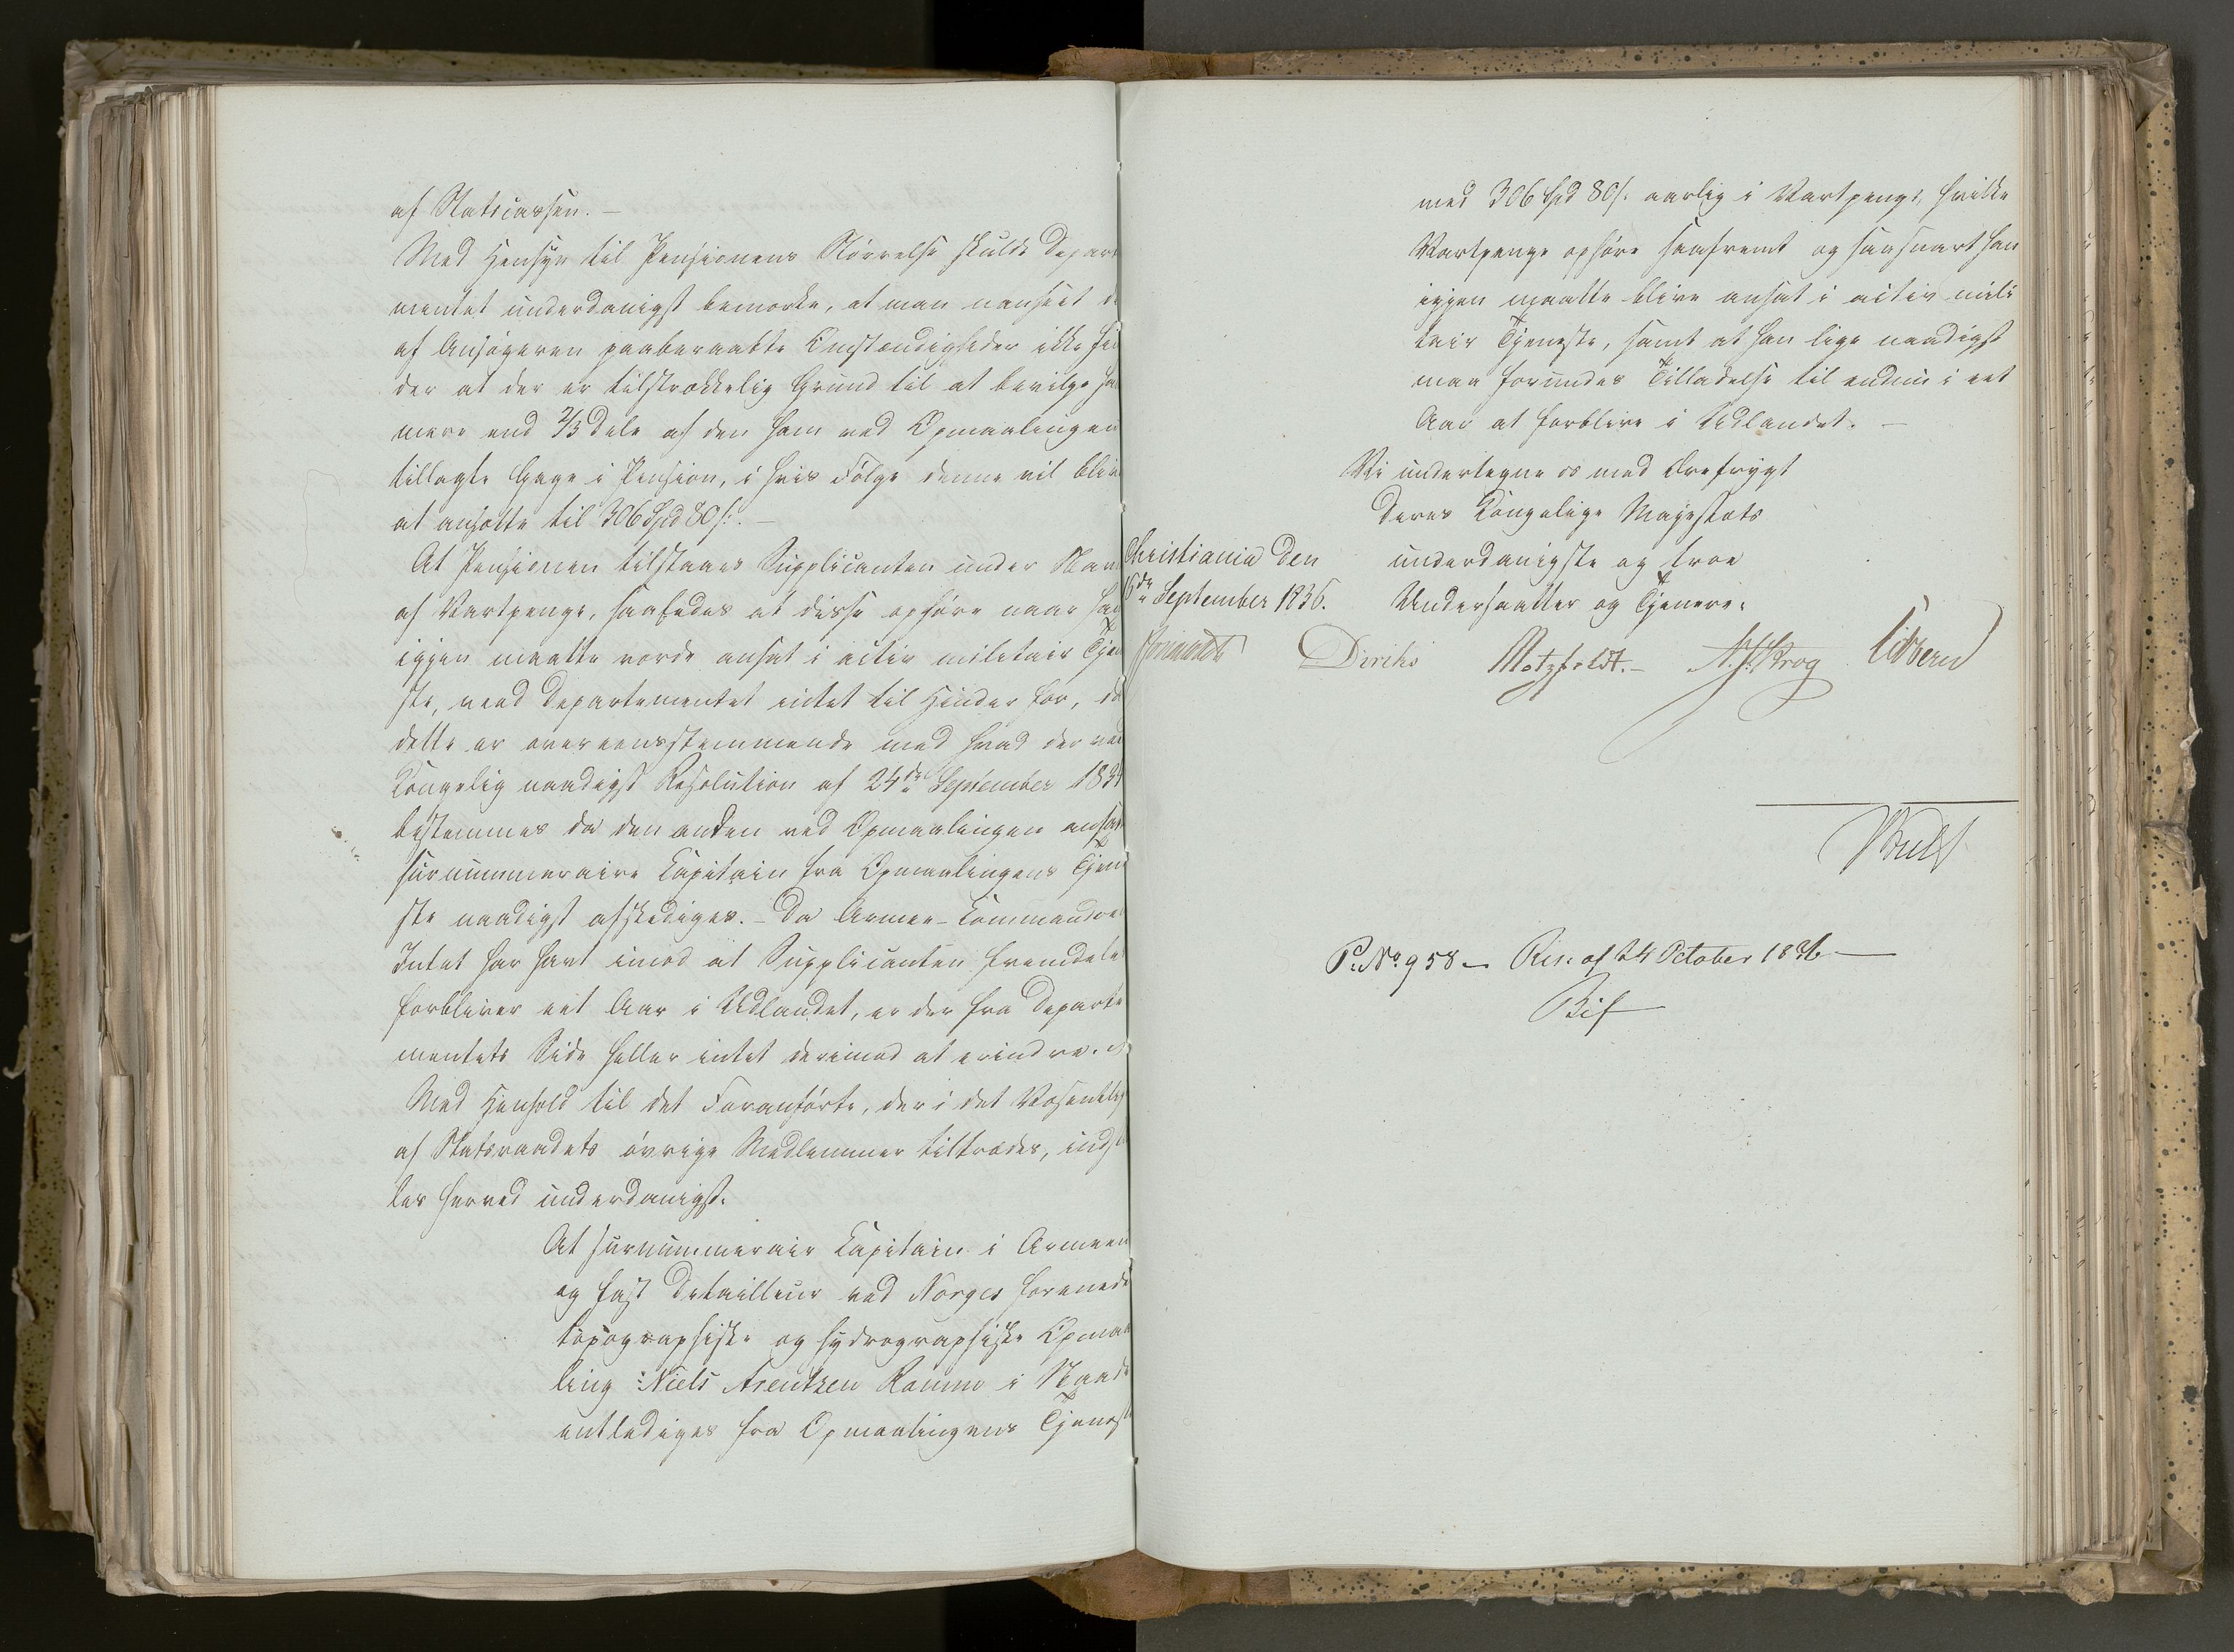 af Statscassen. —
Med Hensyn til Pensionens Størrelse skulde Depart
mentet underdanigst bemærke, at man uanseet d
af Ansøgeren paaberaabte Omstændigheder ikke fin
der at der er tilstrækkelig Grund til at bevilge ha
mere end 2/3 Dele af den ham ved Opmaalingen
tillagte Gage i Pension, i hvis Følge denne vil bliv
at ansætte til 306 Spd 80 s. —
At Pensionen tilstaaes Supplicanten under Nav
af Vartpenge, saaledes at disse ophøre naar ha
igjen maatte vorde ansat i activ militair Tjen
ste, veed Departementet intet til Hinder for, da
dette er overeensstemmende med hvad der ved
Kongelig naadigst Resolution af 24de September 183
bestemmes da den anden ved Opmaalingen ansat
surnummeraire Capitain fra Opmaalingens Tjen
ste naadigst afskediges. – Da Armee-Commandoe
Intet har havt imod at Supplicanten fremdeles
forbliver eet Aar i Udlandet, er der fra Departe
mentets Side heller intet derimod at erindre.
Med Henhold til det Foranførte, der i det Væsentlig
af Statsraadets øvrige Medlemmer tiltrædes, indst
les herved underdanigst.
At surnummerair Capitain i Armeen
og fast Detailleur ved Norges forenede
topographiske og hydrographiske Opmaa
ling Niels Arentzen Ramm i Naade
entlediges fra Opmaalingens Tjenest
med 306 Spd 80 s. aarlig i Vartpenge, hvilke
Vartpenge ophøre saafremt og saasnart han
igjen maatte blive ansat i activ mili
tair Tjeneste, samt at han lige naadigst
maa forundes Tilladelse til endnu i eet
Aar at forblive i Udlandet. —
Vi undertegne os med Ærefrygt
Deres Kongelige Majestæts
Christiania den underdanigste og troe
6de September 1836. Undersaatter og Tjenere.
Diriks Motzfeldt. – Krog Vibe
P. No. 958 — Res. af 24 October 1836 —